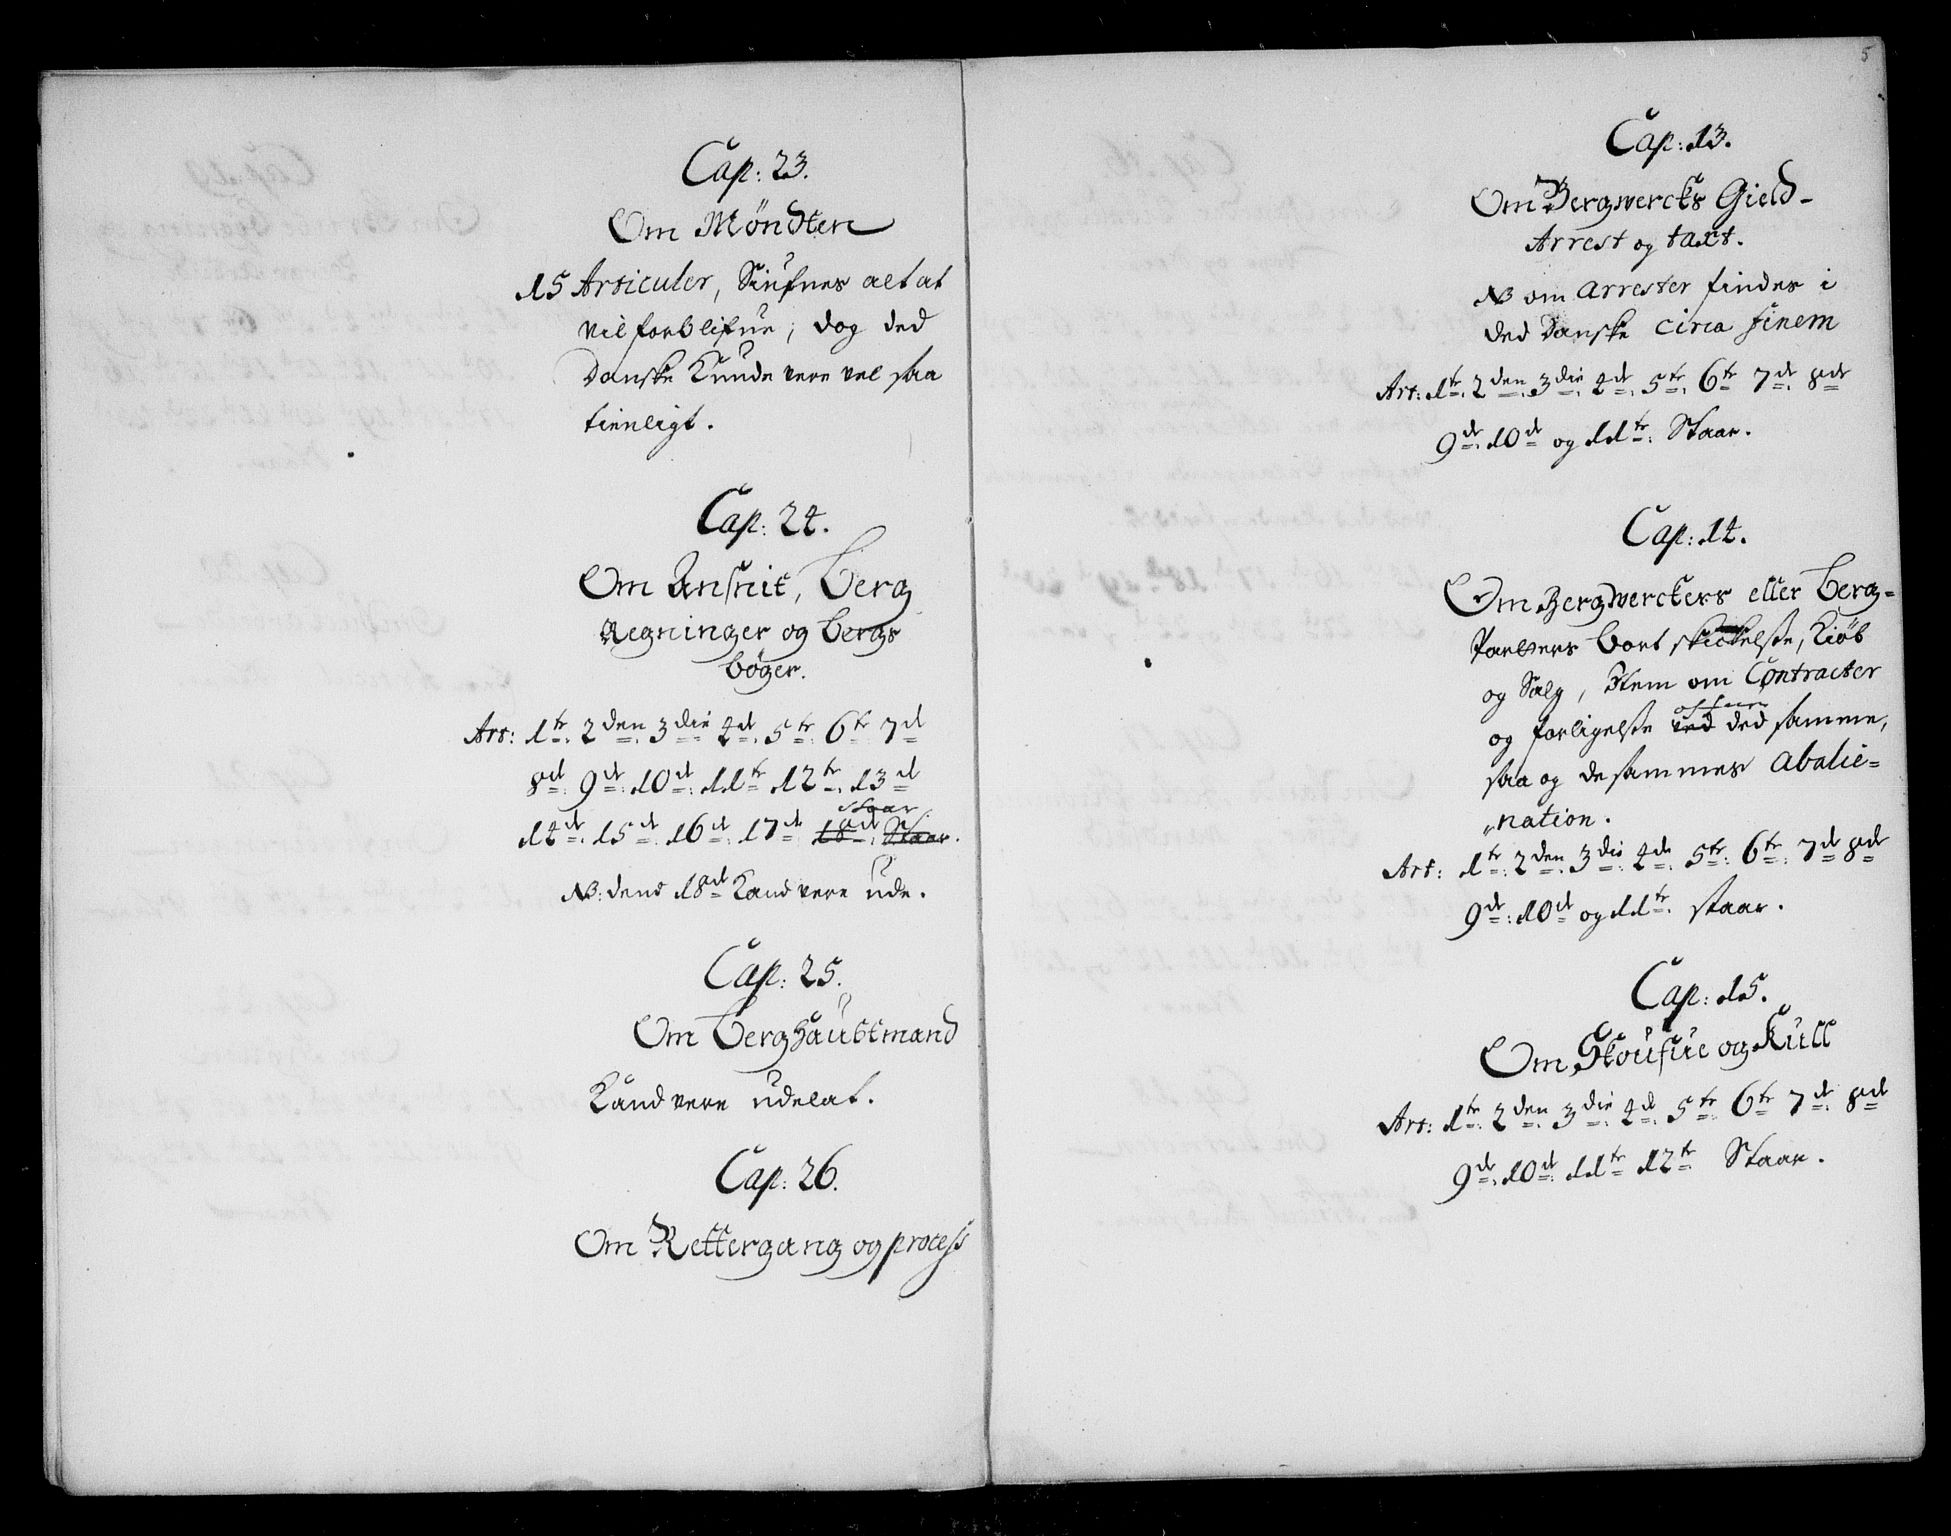 Cap: 23.
Om Möndten
15 Articuler, Siufnes alt at
vil forblifue, dog ded
Danske Kunde vere vel saa
tienligt.
Cap: 24.
Om Ansnit, berg
Regninger og bergs
bøger.
Art: 1tr. 2den 3die 4de 5te 6te 7de
8de 9de 10de 11te 12te 13de
staar
14de 15de 16de 17de 18de Staar.
NB: dend 18de Kand vere ude.
Cap: 25.
Om berghaubtmand
Kand vere udelat.
Cap: 26.
Om Rettergang og process
5
Cap: 13.
Om Bergwercks Gield-
Arrest og taxt.
NB om Arrester findes i
ded Danske circa finem
Art: 1te 2den 3die 4de 5te 6te 7de 8de
9de 10de og 11te: Staar.
Cap: 14.
Om Bergwerckers eller berg-
Parters bort skickelse, Kiøb
og Salg, Item om Contracter
og forligelse ved ded samme,
saa og de sammes Abalie=
„nation.
Art: 1te 2den 3die 4de 5te 6te 7de 8de
9de 10de og 11te staar.
Cap: 15.
Om Skoufue og Kull
Art: 1te 2den 3die 4de 5te 6te 7de 8de
9de 10de 11te 12te Staar.